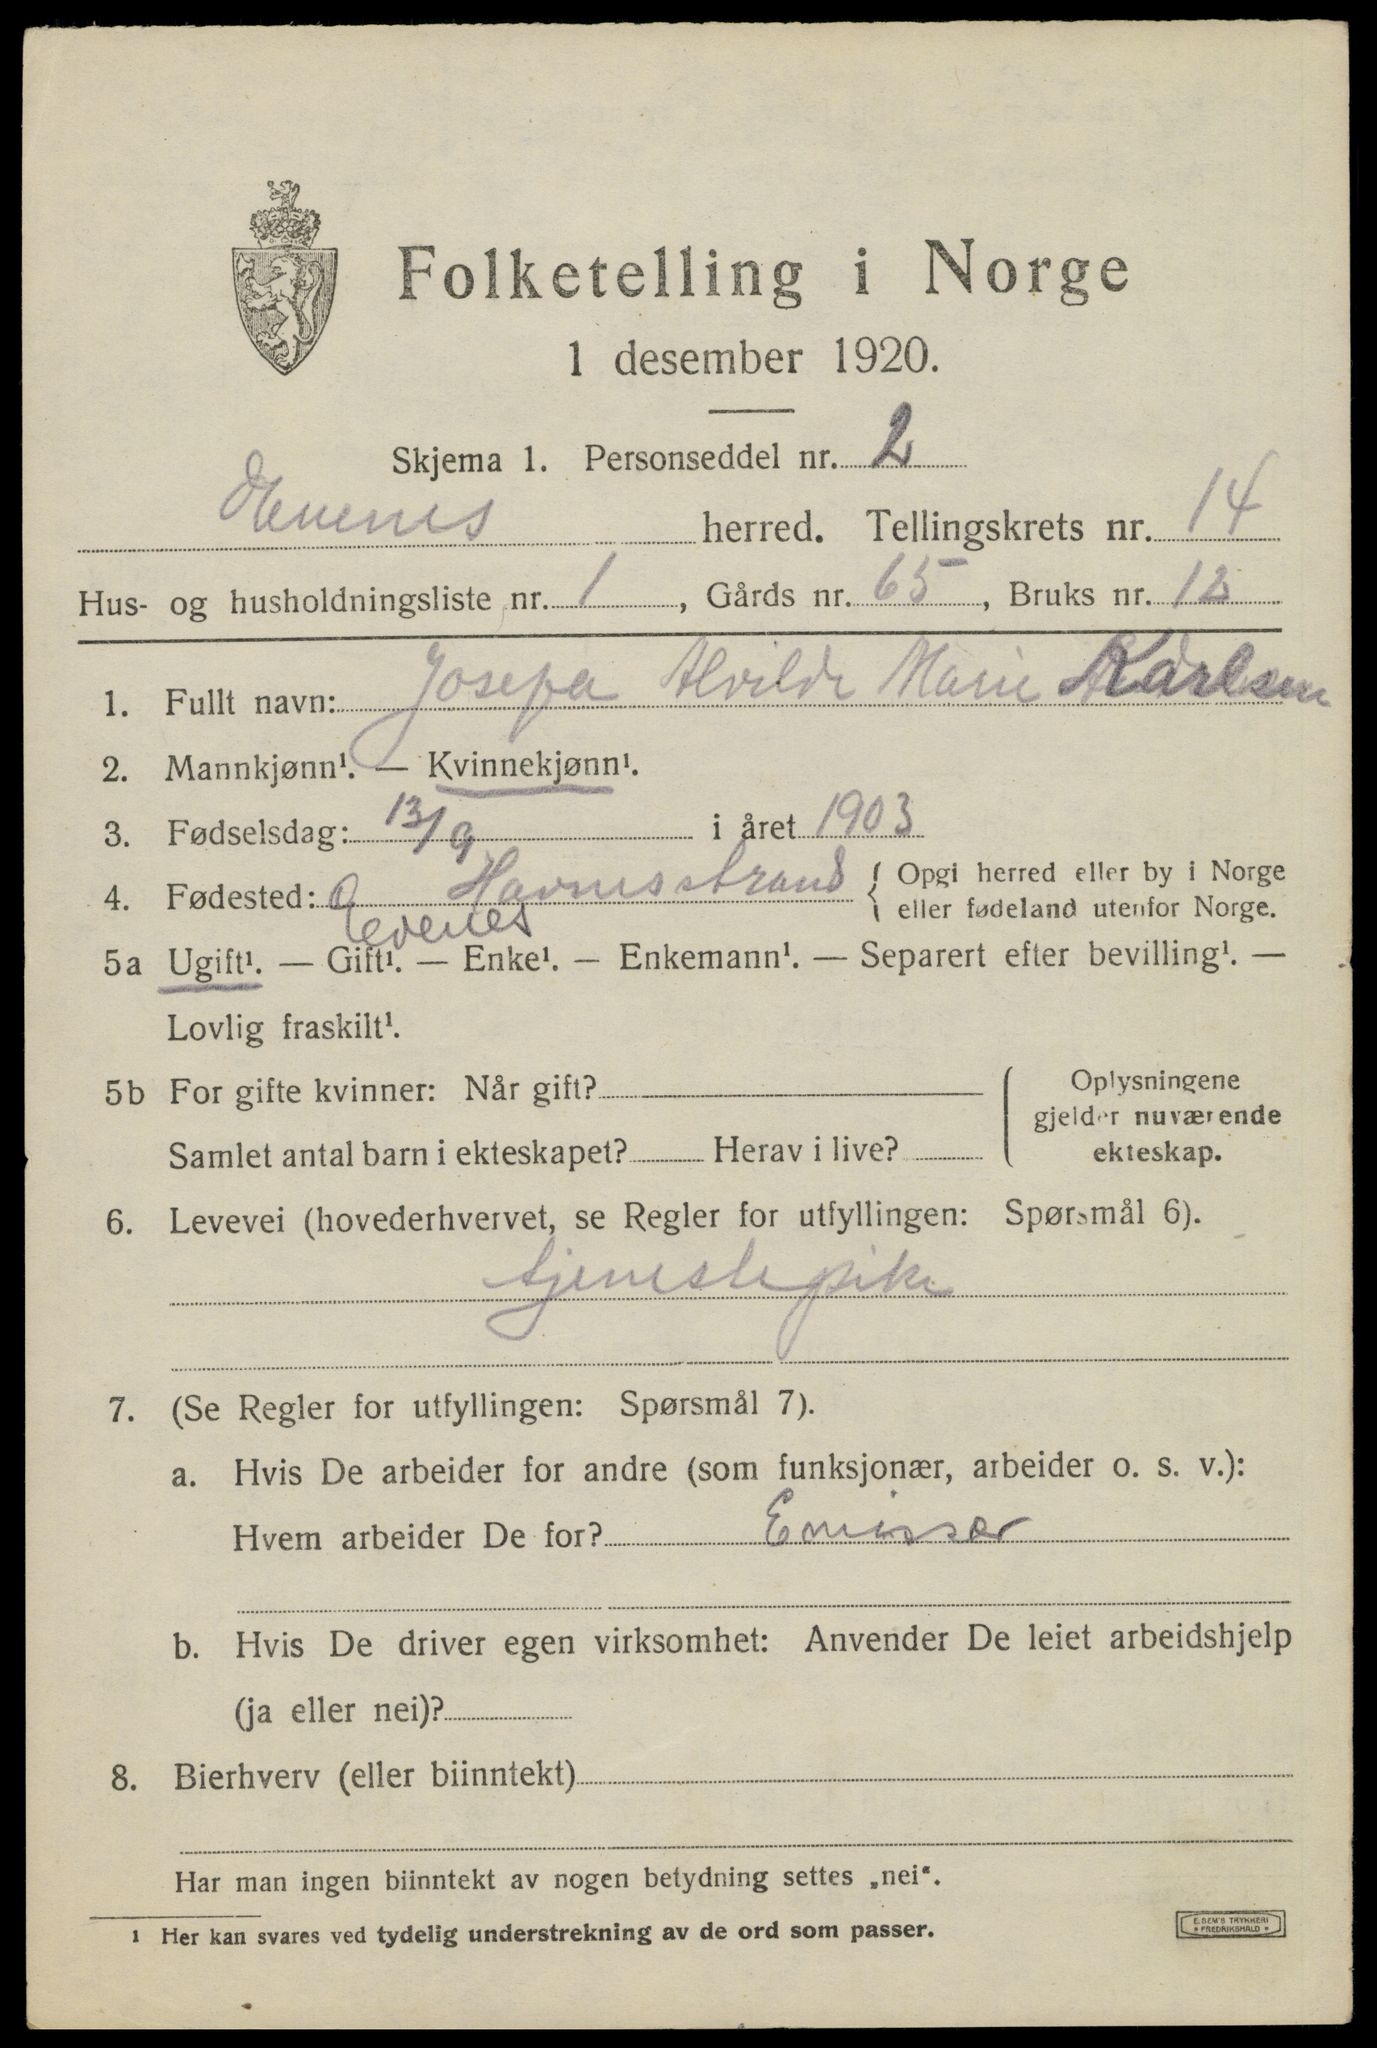 Folketelling i Norge
1 desember 1920.
Skjema 1. Personseddel nr. 2
Evenes herred. Tellingskrets nr. 14
Hus- og husholdningsliste nr. 1, Gårds nr. 65, Bruks nr. 12
1. Fullt navn: Josefa Alvilde Marie Karlsen
2. Mannkjønn¹. — Kvinnekjønn¹.
3. Fødselsdag: 13/9 i året 1903
4. Fødested: Havnesstrand { Opgi herred eller by i Norge
eller fødeland utenfor Norge.
Evenes
5a Ugift¹. — Gift¹. — Enke¹. — Enkemann¹. — Separert efter bevilling¹. —
Lovlig fraskilt¹.
5b For gifte kvinner: Når gift? { Oplysningene
gjelder nuværende
Samlet antal barn i ekteskapet? Herav i live? ekteskap.
6. Levevei (hovederhvervet, se Regler for utfyllingen: Spørsmål 6).
tjenestepike
7. (Se Regler for utfyllingen: Spørsmål 7).
a. Hvis De arbeider for andre (som funksjonær, arbeider o. s. v.):
Hvem arbeider De for? Emissær
b. Hvis De driver egen virksomhet: Anvender De leiet arbeidshjelp
(ja eller nei)?
8. Bierhverv (eller biinntekt)
Har man ingen biinntekt av nogen betydning settes „nei“.
1 Her kan svares ved tydelig understrekning av de ord som passer.
E. SEM'S TRYKKERI
* FREDRIKSHALD *